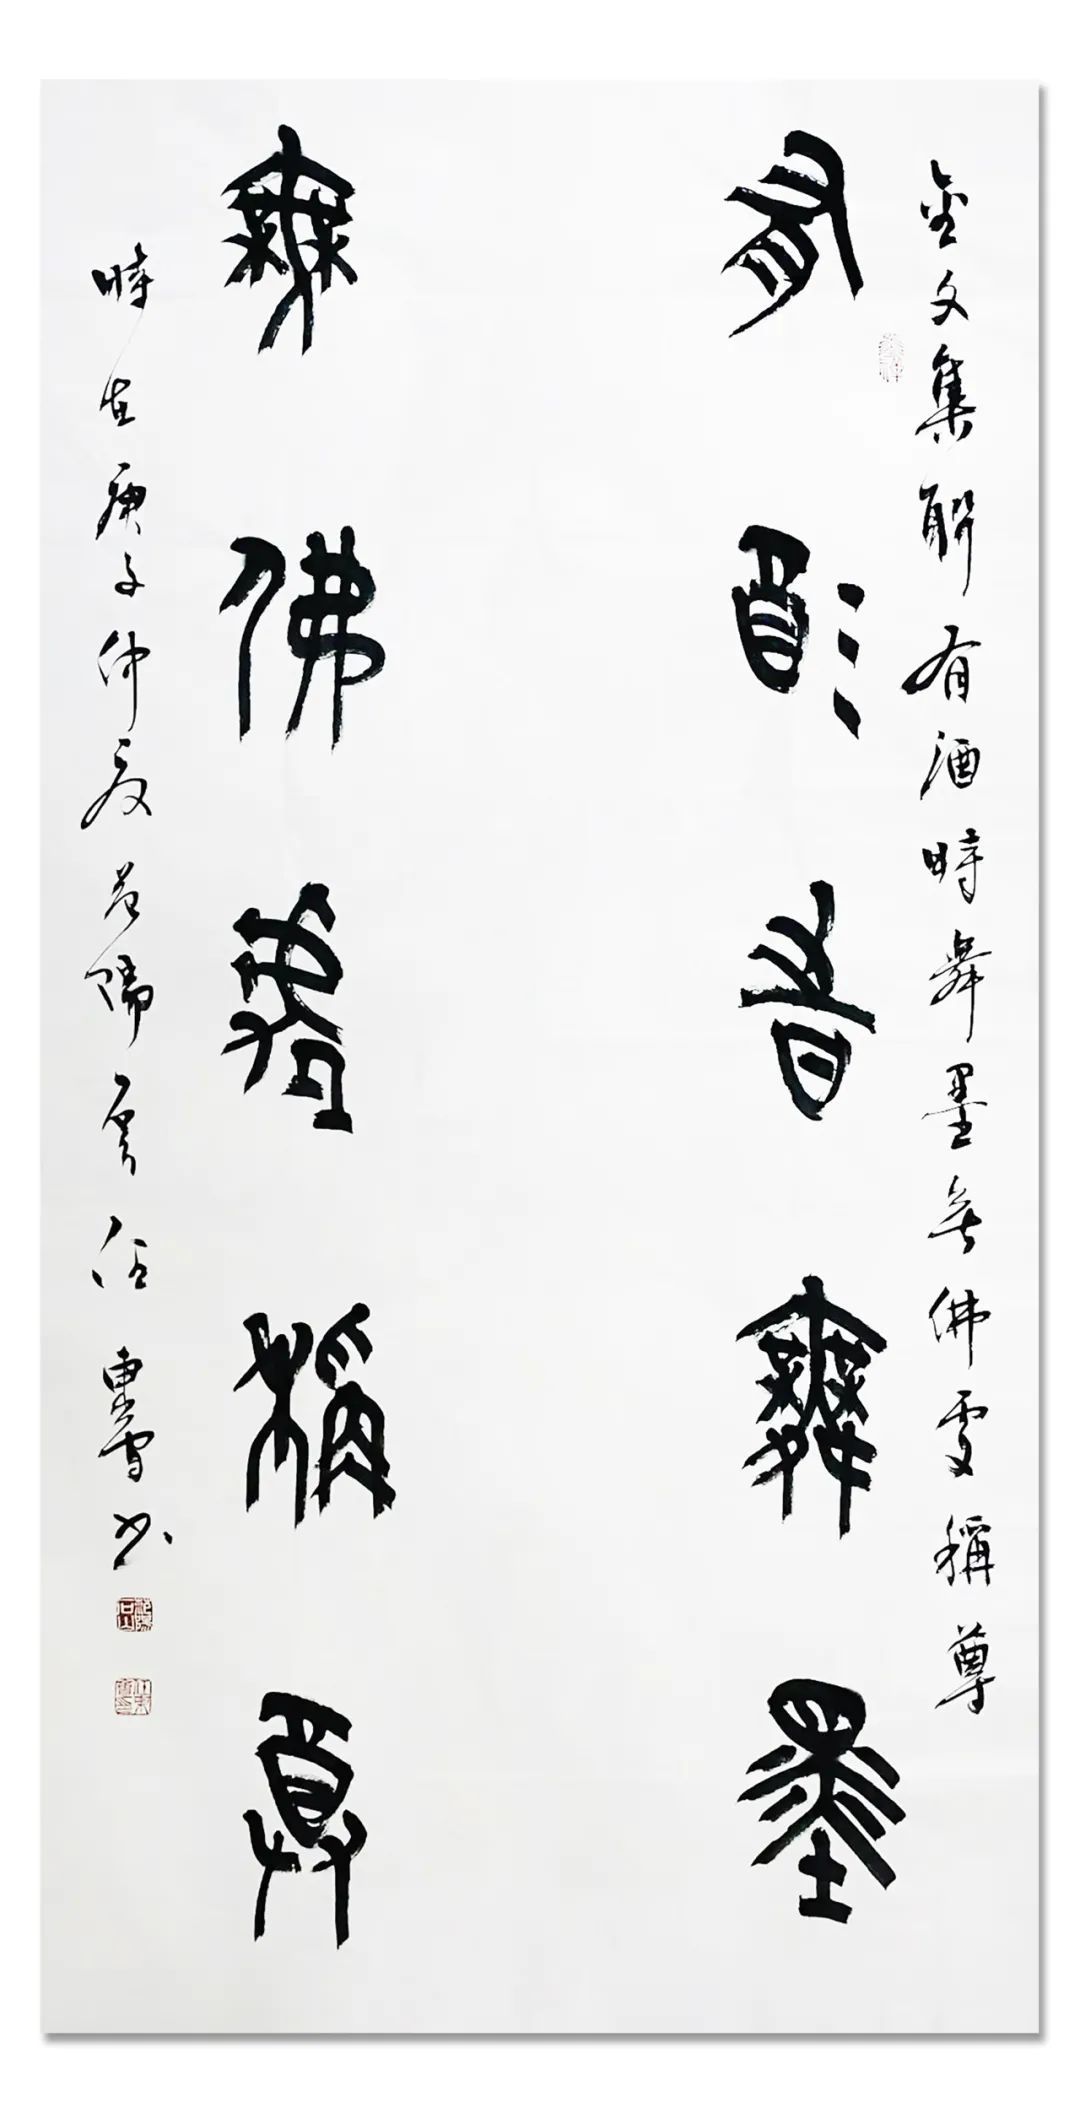 金文集聯有酒時舞墨無佛處稱尊
有酒時舞墨
無佛處稱尊
時在庚子仲夏若陽雲任東雪書